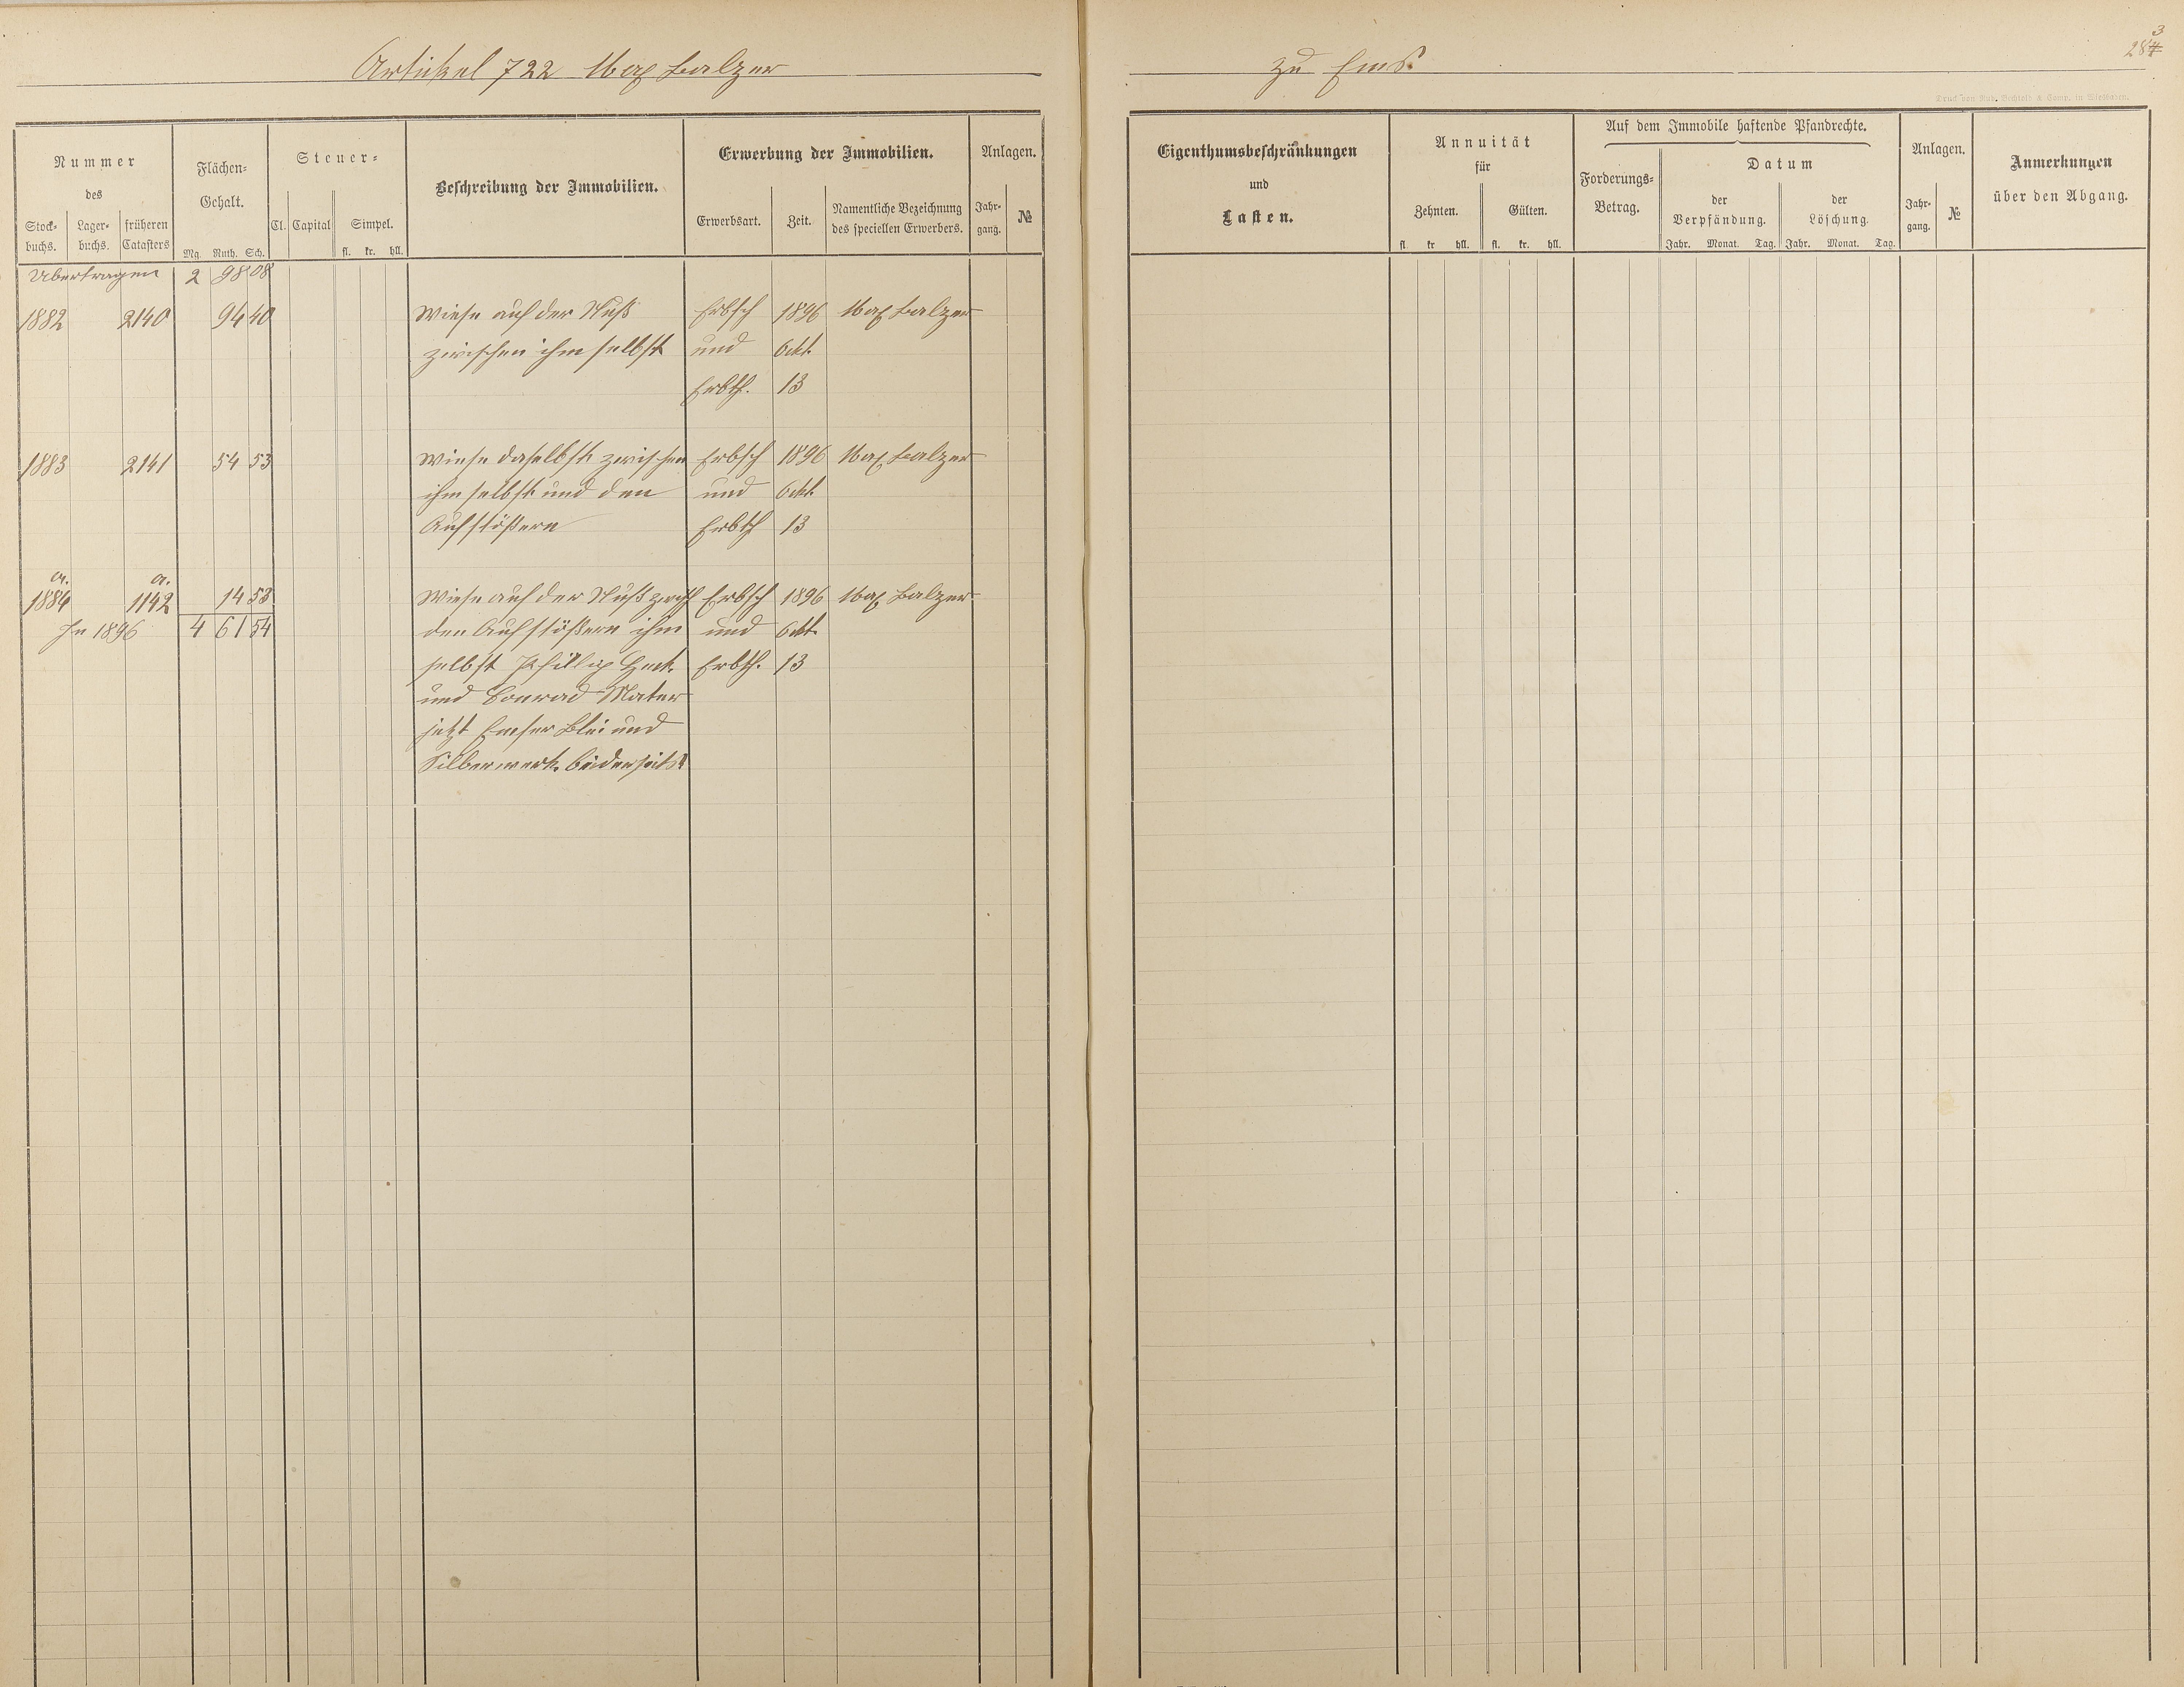 Artikel 722 Max Balzer
zu Ems.
283
Druck von Rud. Bechtold & Comp. in Wiesbaden.
Nummer
des
Stock-
buchs.
Lager-
buchs.
früheren
Catasters
Flächen-
Gehalt.
Mg. Ruth. Sch.
Steuer-
Cl. Capital Simpel.
fl. kr. hll.
Beschreibung der Immobilien.
Erwerbung der Immobilien.
Erwerbsart. Zeit.
Namentliche Bezeichnung
des speciellen Erwerbers.
Anlagen.
Jahr-
gang.
№
Eigenthumsbeschränkungen
und
Lasten.
Annuität
für
Zehnten. Gülten.
fl. kr. hll. fl. kr. hll.
Auf dem Immobile haftende Pfandrechte.
Forderungs-
Betrag.
Datum
der
Verpfändung.
der
Löschung.
Jahr. Monat. Tag. Jahr. Monat. Tag.
Anlagen.
Jahr-
gang.
№
Anmerkungen
über den Abgang.
Übertragen 2 98 08
1882 2140 94 40 Wiese auf der Nuß Erbsch 1896 Max Balzer
zwischen ihm selbst und Okt.
Erbth. 13
1883 2141 54 53 Wiese daselbst zwischen Erbsch 1896 Max Balzer
ihm selbst und den und Okt.
Aufstößern Erbth 13
a. a.
1884 1142 14 53 Wiese auf der Nuß zwisch Erbsch 1896 Max Balzer
In 1896 4 61 54 den Aufstößern ihm und Okt.
selbst Phillip Heck. Erbth. 13
und Conrad Mater
jetzt Emser Blei und
Silberwerk beiderseits